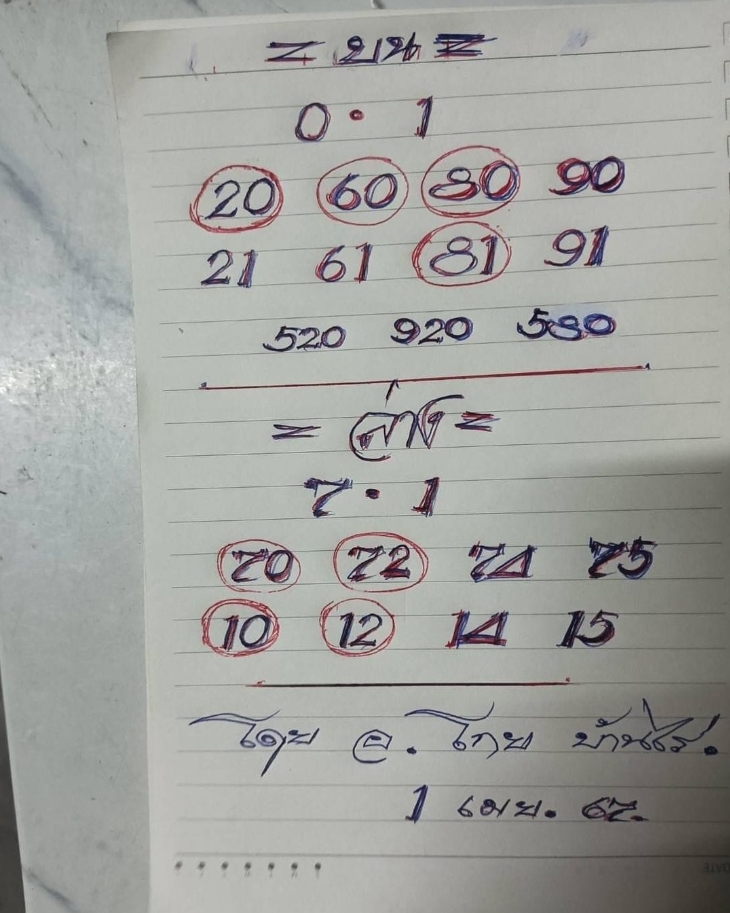 = บน =
0 · 1
20 60 80 90
21 61 81 91
520 920 580
= ล่าง =
7 · 1
70 72 74 75
10 12 14 15
โดย อ. โกย บ้านไร่.
1 เมย. 67.